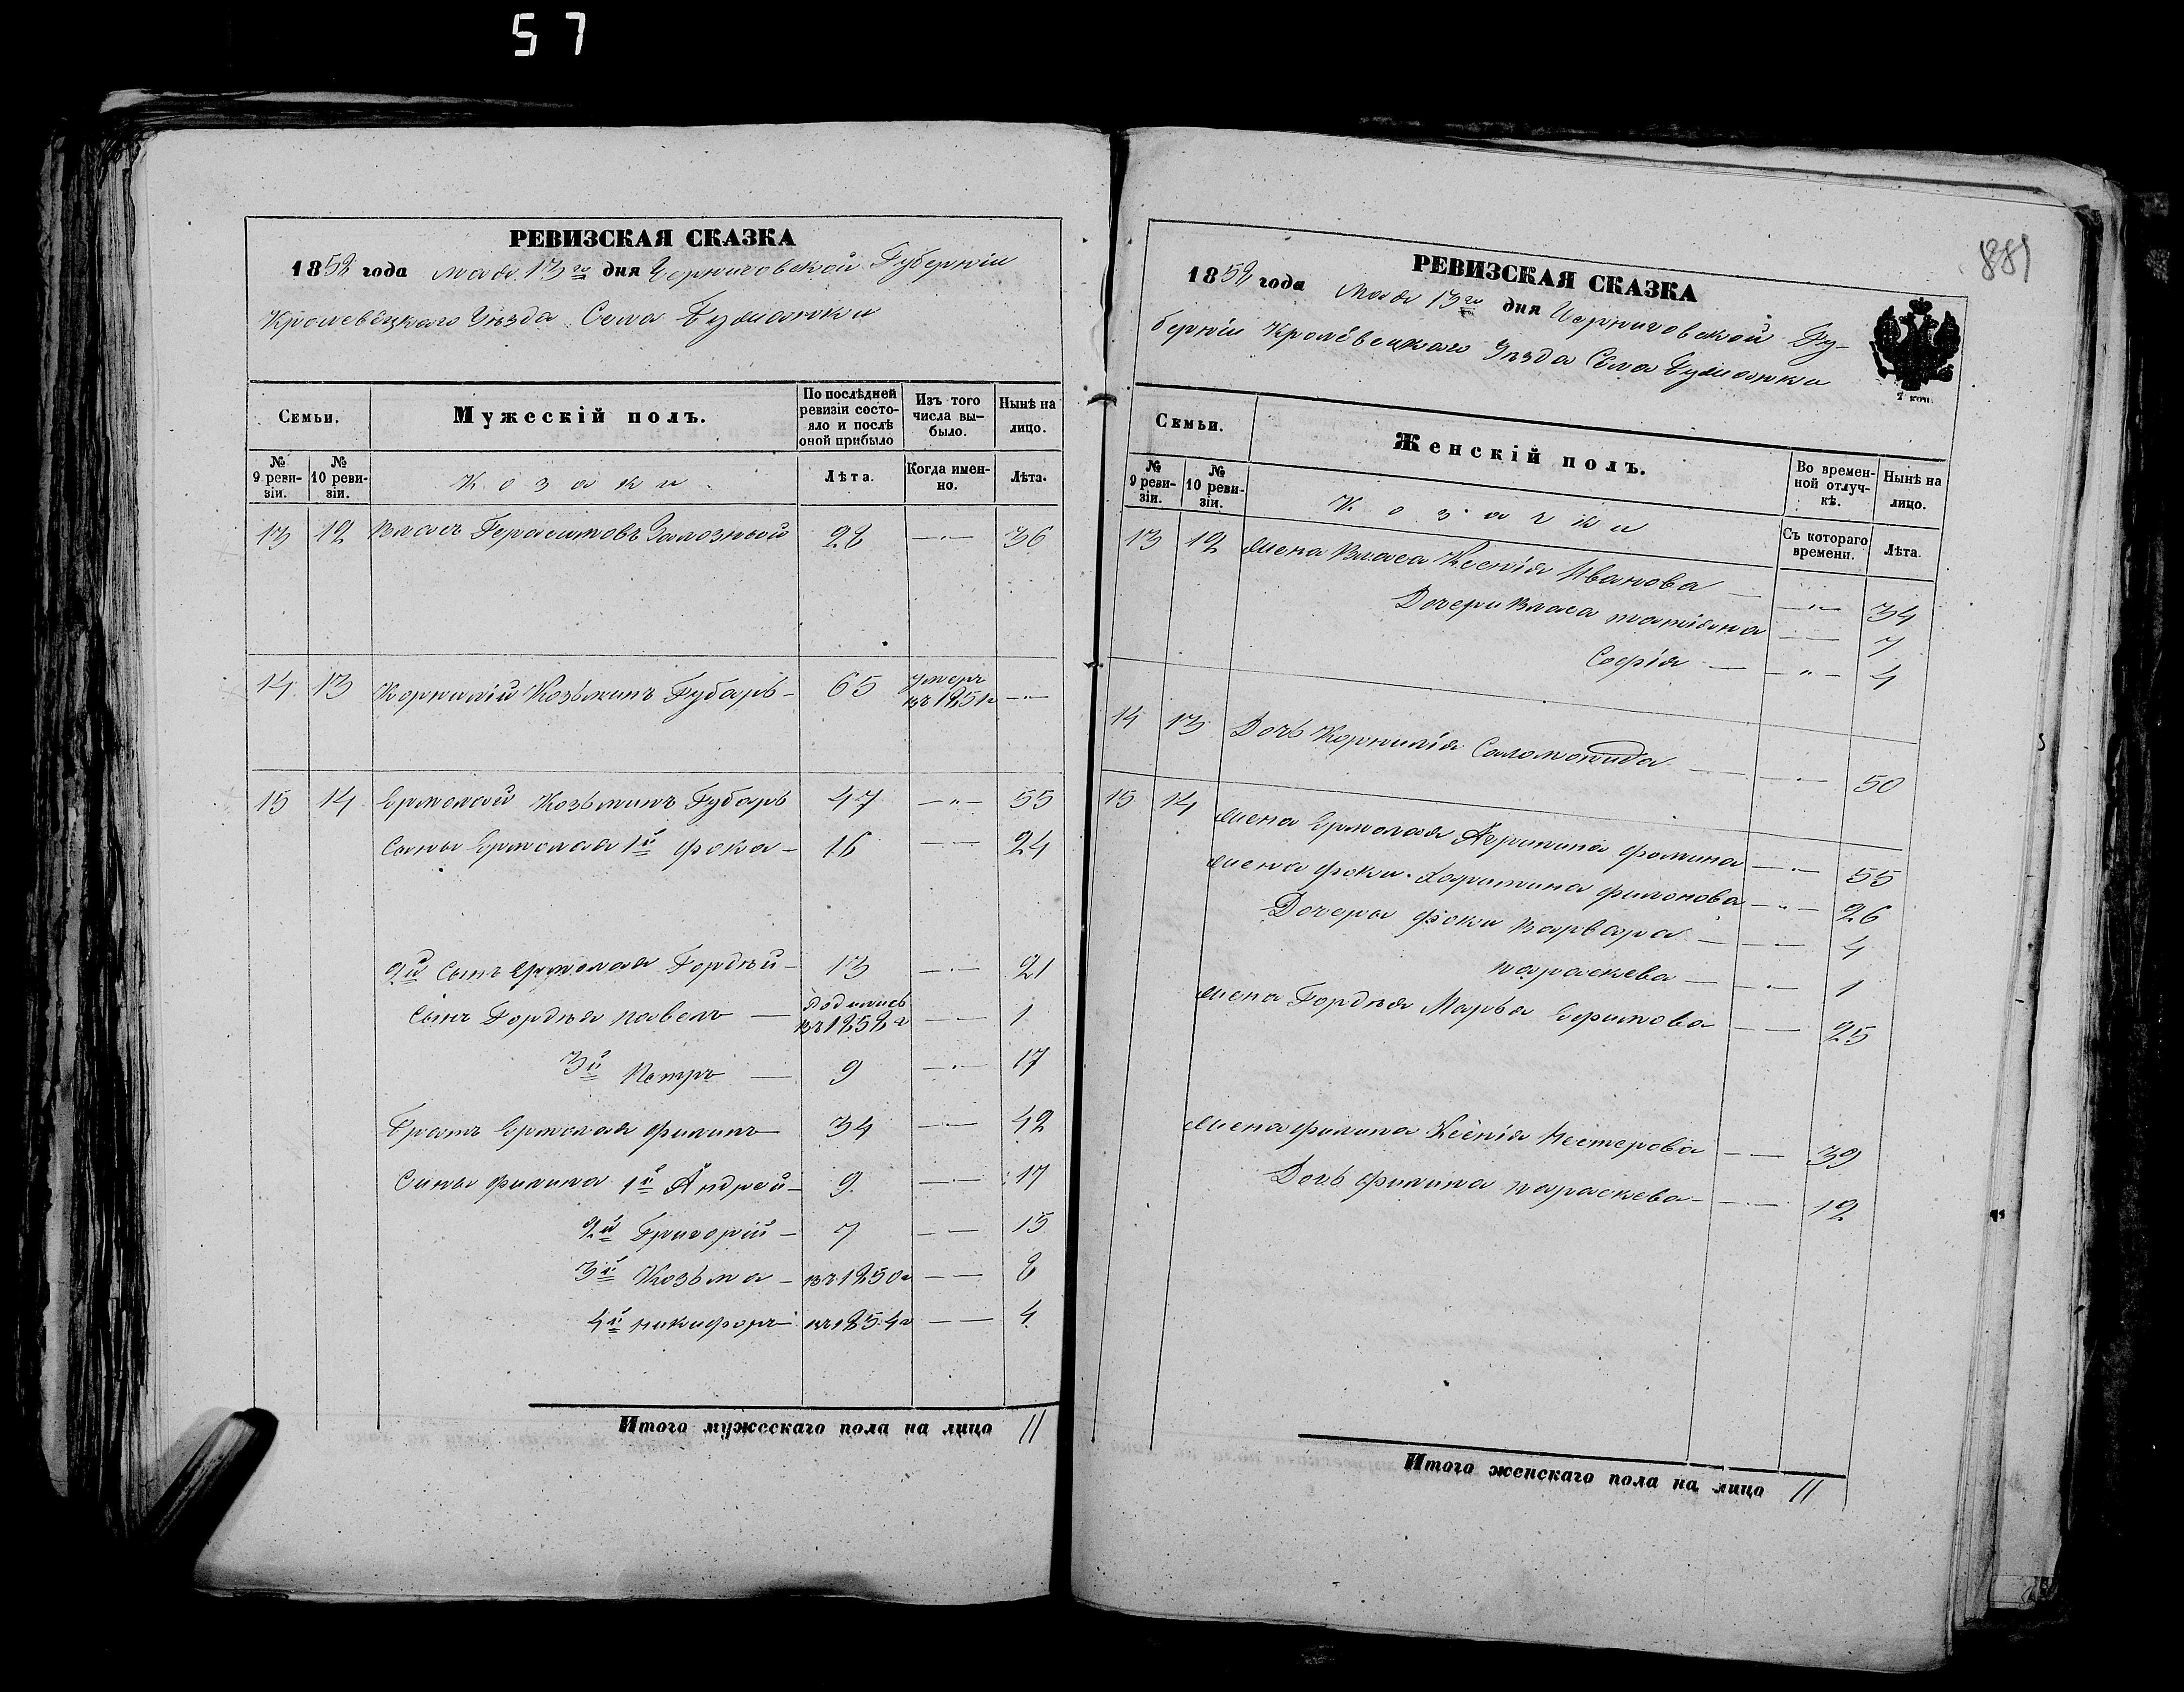 57
РЕВИЗСКАЯ СКАЗКА
1858 года мая 13го дня Черниговской Губерніи
Кролевецкаго Уѣзда Села
Семьи.
Мужескій полъ.
По послѣдней ревизіи состояло и послѣ оной прибыло
Изъ того числа вы-было.
Нынѣ на лицо.
№ 9 реви-зіи.
№ 10 реви-зіи.
Козаки
Лѣта.
Когда имен-но.
Лѣта.
13 12 Власъ Герасимовъ Залозный 28 — 36
14 13 Корнилій Козьминъ Губарь 65 умеръ въ 1851г —
15 14 Ермолай Козьминъ Губарь 47 — 55
Сыны Ермолая 1й Фока 16 — 24
2й Сынъ Ермолая Гордѣй 13 — 21
Сынъ Гордѣя павелъ въ 1858г — 1
3й Петръ 9 — 17
Братъ Ермолая Филипъ 34 — 42
Сины филипа 1й Андрей 9 — 17
2й Григорій 7 — 15
3й Козьма въ 1850г — 8
4й никифоръ въ 1854г — 4
Итого мужескаго пола на лицо 11
881
РЕВИЗСКАЯ СКАЗКА
1858 года Мая 13го дня Черниговской Гу-
берніи Кролевецкаго Уѣзда Села
2 коп.
Семьи.
Женскій полъ.
Во времен-ной отлуч-кѣ.
Нынѣ на лицо.
№ 9 реви-зіи.
№ 10 реви-зіи.
Козачки
Съ котораго времени.
Лѣта.
13 12 жена Власа Ксенія Иванова — 34
Дочери Власа татіяна — 7
Софія — 4
14 13 Дочь Корнилія Саломонида — 50
15 14 жена Ермолая Агрипина фомина — 55
жена фоки Харитина филонова — 26
Дочери Фоки варвара — 4
параскева — 1
жена Гордѣя Марья Ефимова — 25
жена филипа Ксенія Нестерова — 39
Дочь филипа параскева — 12
Итого женскаго пола на лицо 11